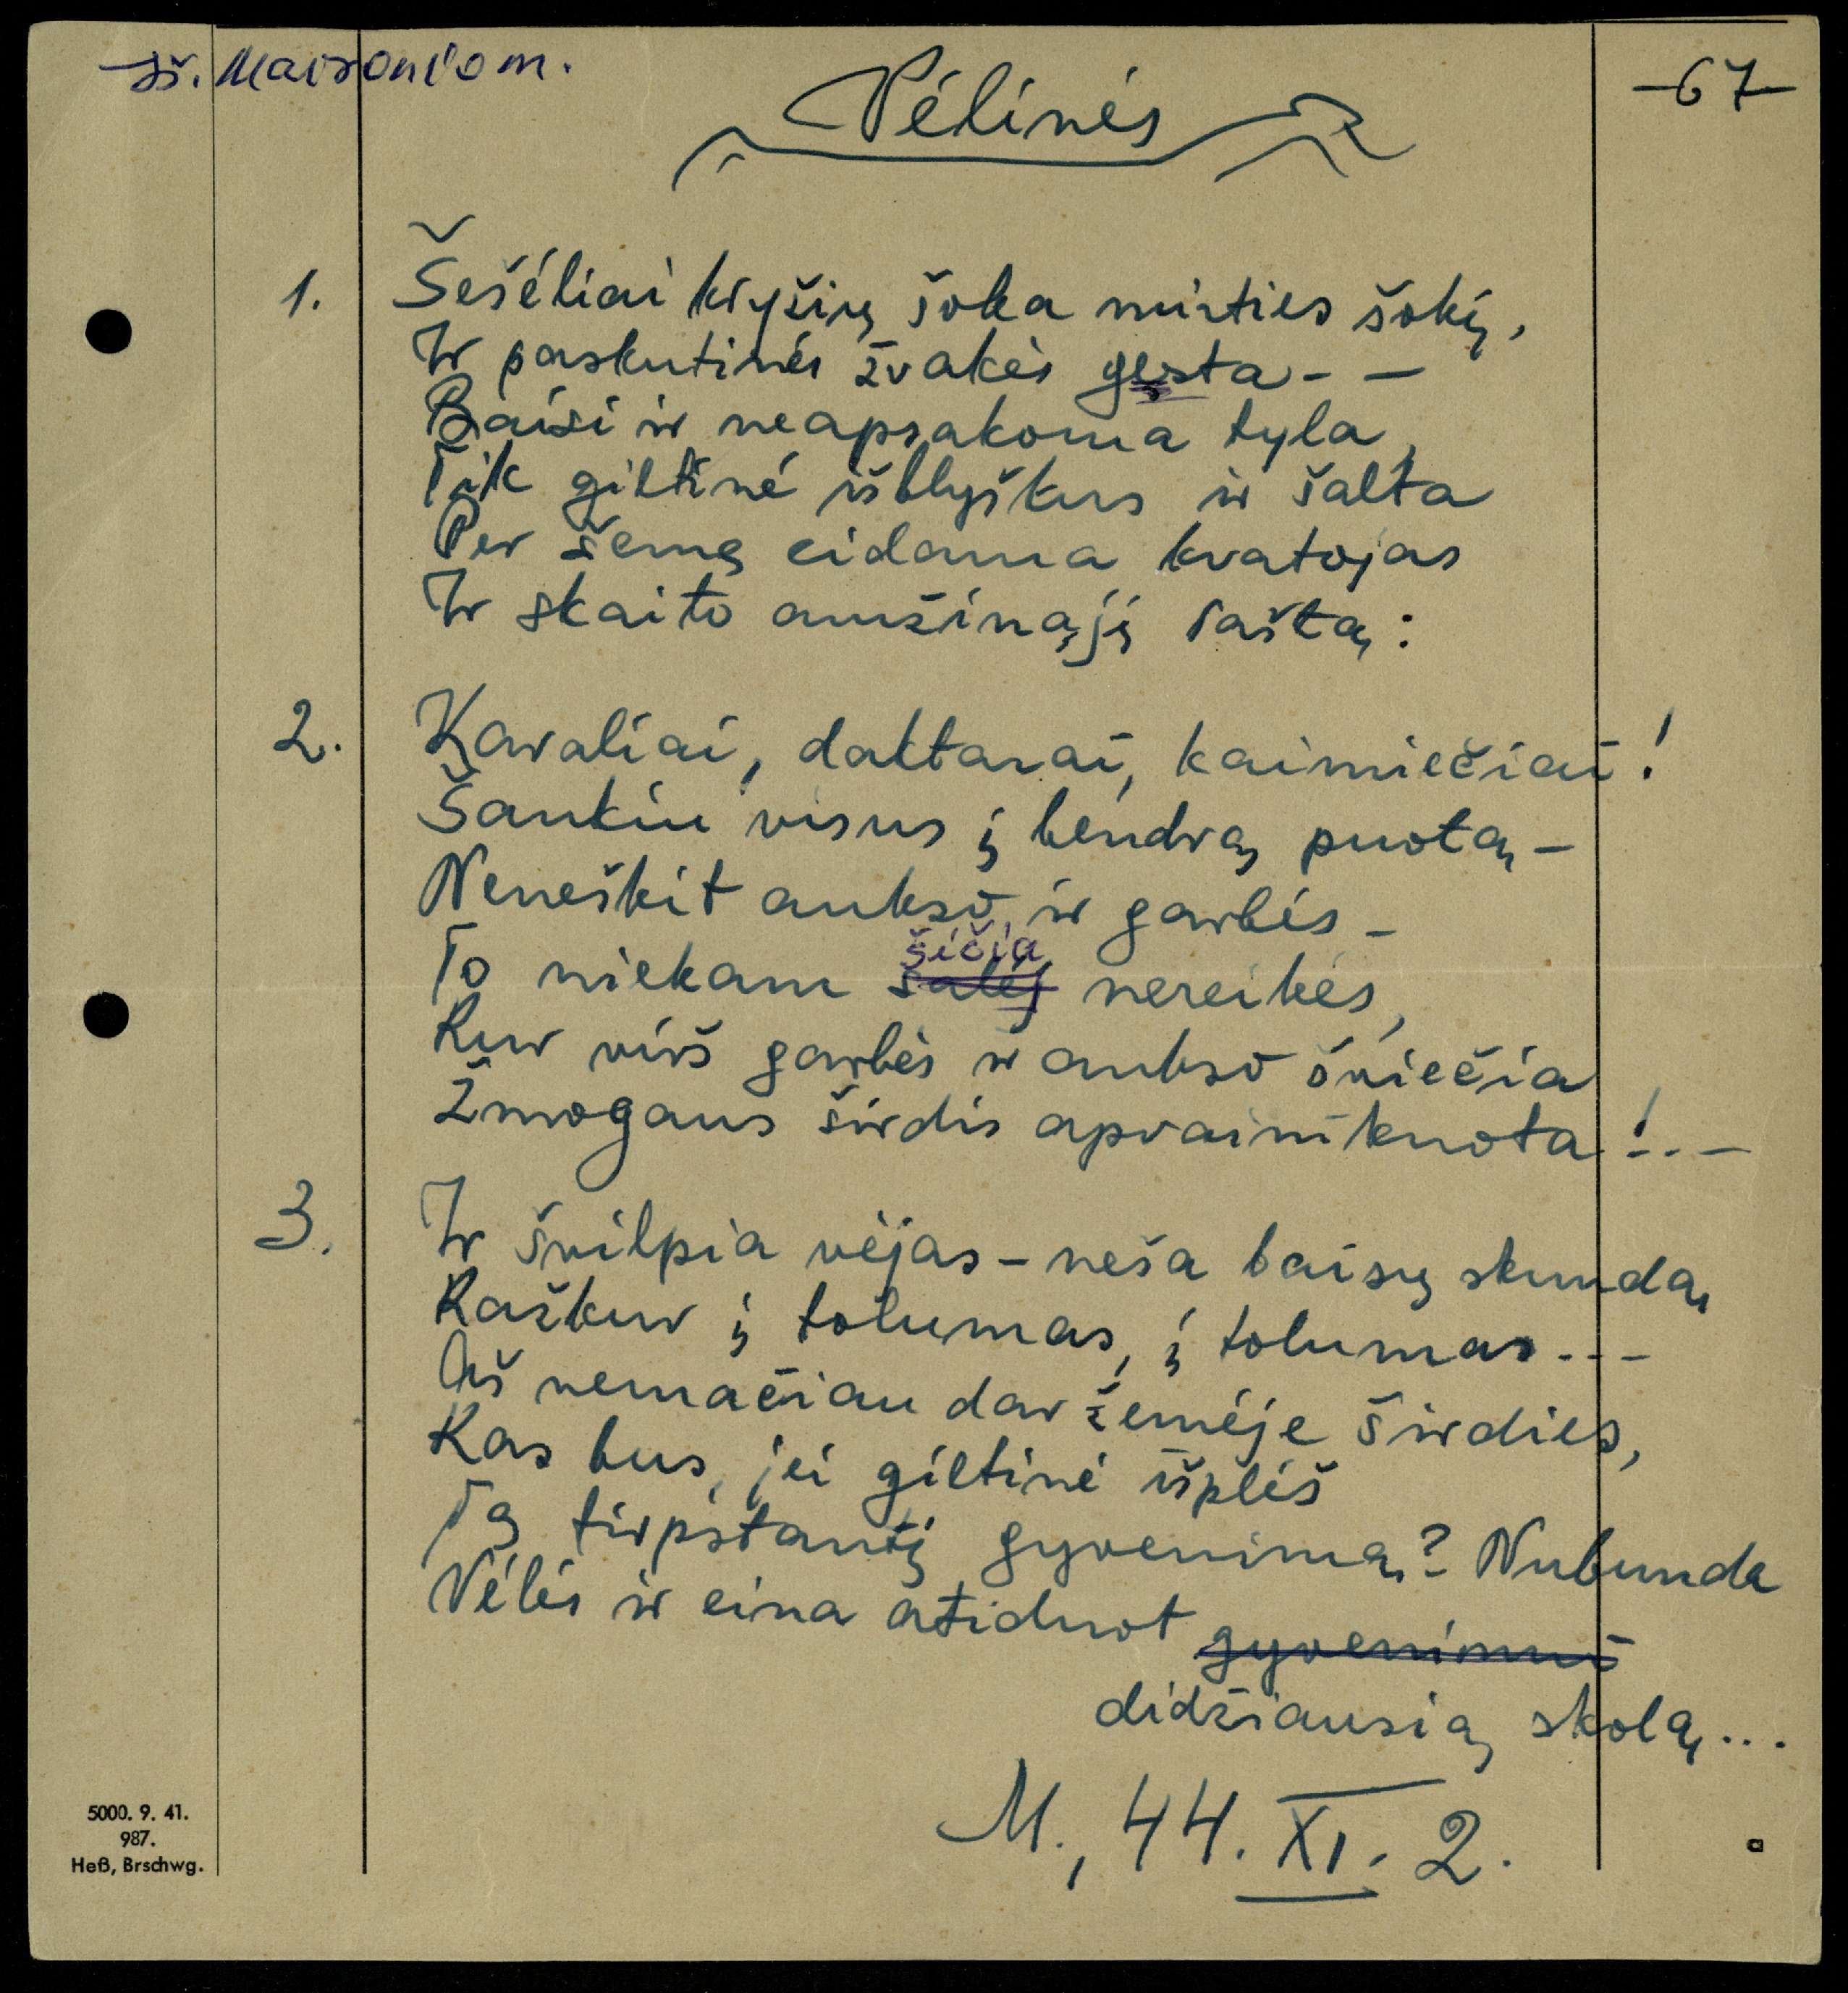 Iš. Maironiom.
-67-
Vėlinės
1. Šešėliai kryžių šoka mirties šokį,
Ir paskutinės žvakės gęsta - -
Baisi ir neapsakoma tyla,
Tik giltinė išblyškus ir šalta
Per žemę eidama kvatojas
Ir skaito amžinąjį raštą:
2. Karaliai, daktarai, kaimiečiai!
Šaukiu visus į bendrą puotą, -
Neneškit aukso ir garbės -
To niekam šalėj šičia nereikės,
Kur virš garbės ir aukso šviečia
Žmogaus širdis apvainikuota!..-
3. Ir švilpia vėjas - neša baisų skundą,
Kažkur į tolumas, į tolumas...
Aš nemačiau dar žemėje širdies,
Kas bus, jei giltinė išplėš
Tą tirpstantį gyvenimą? - Nubunda
Vėlės ir eina atiduot gyvenimui
didžiausią skolą...
M., 44. XI. 2.
5000. 9. 41.
987.
Heß, Brschwg.